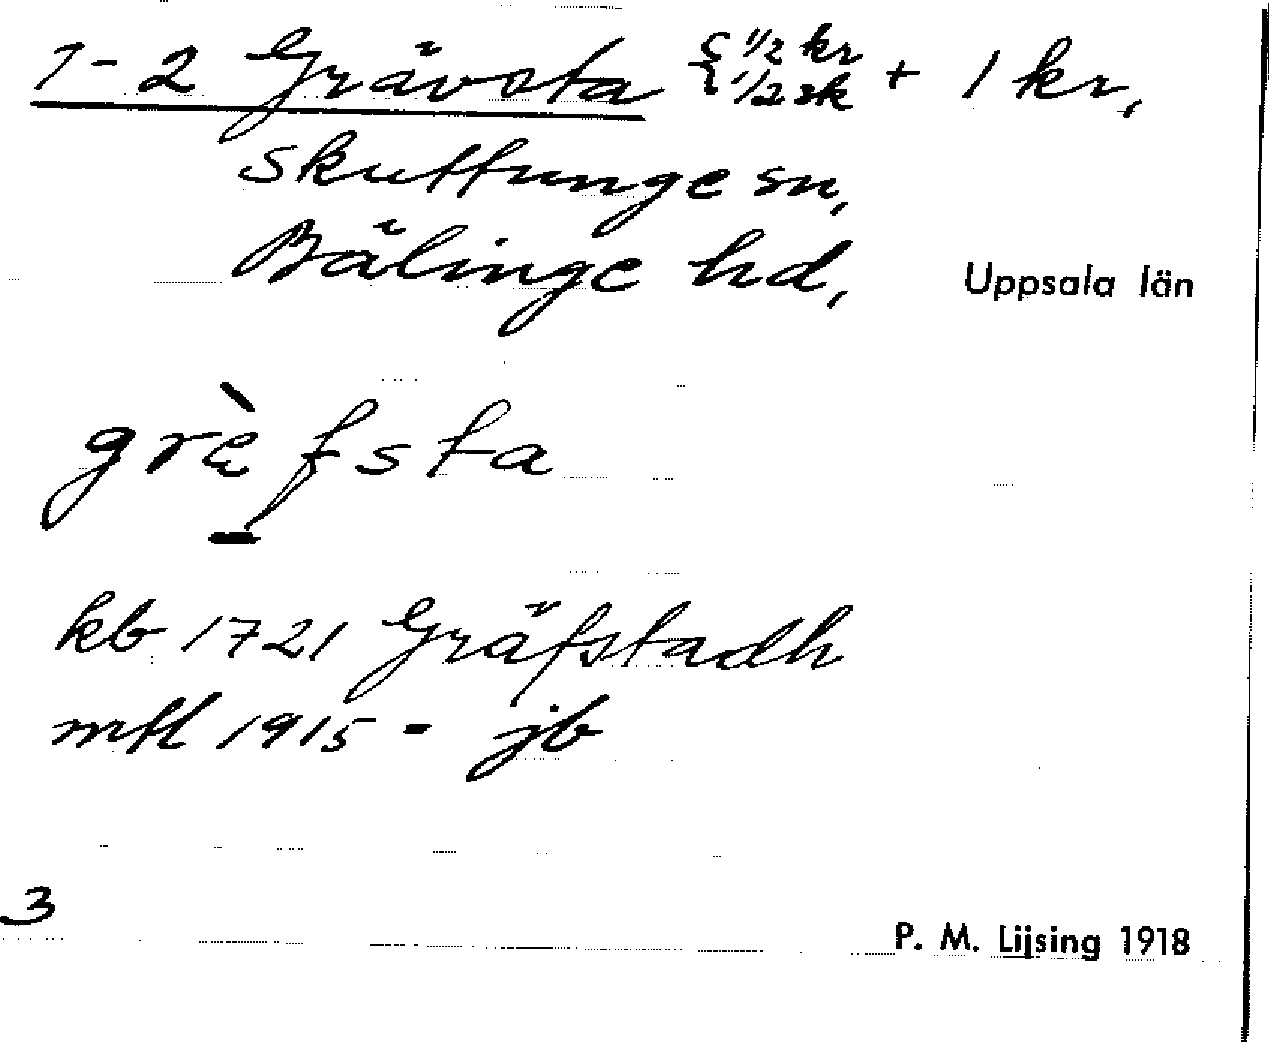 1-2 Grävsta { 1/2 kr 1/2 sk + 1 kr,
Skuttunge sn,
Bälinge hd, Uppsala län
grὲfsta
kb 1721 Gräfstadh
mfl 1915 - jb
3
P. M. Lijsing 1918